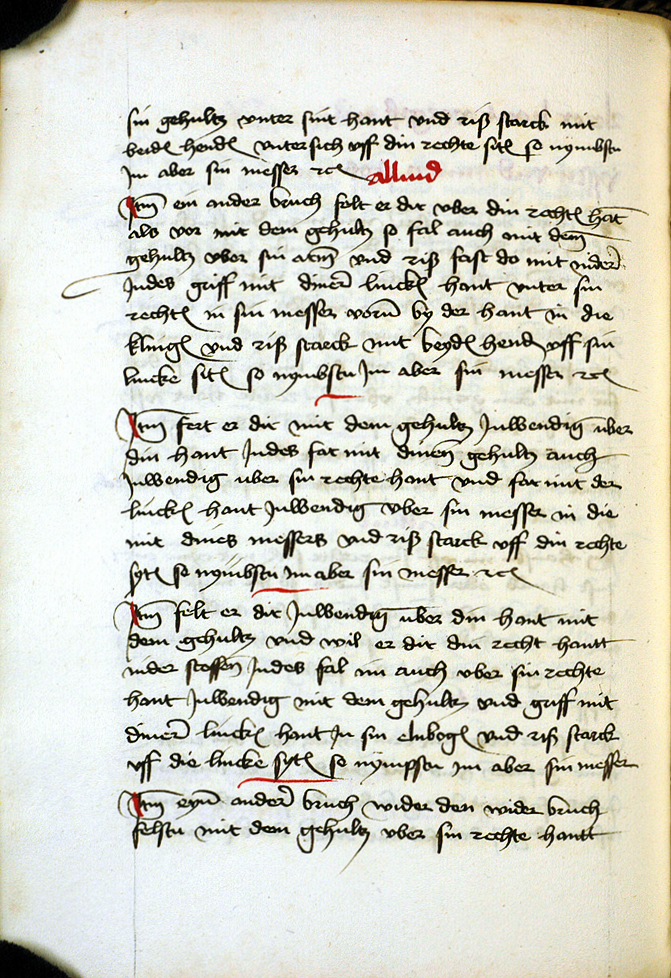 sin gehultz vnter sint hant vnd riß starck mit
beid hend vntersich vff din rechte sit so nymbstu
Im aber sin messer rc
Itm ein ander bruch felt er dir vber din recht hat
als vor mit dem gehultz so fal auch mit dem
gehultz vber sin arm vnd riß fast do mit nider
Indes griff mit diner linck hant vnter sin
recht in sin messer vorn by der hant in die
kling vnd riß starck mit beyd hend vff sin
lincke sit so nymbstu Im aber sin messer rc
Itm fert er dir mit dem gehultz Inwendig uber
din hant Indes far mit dinen gehultz auch
Inwendig uber sin rechte hant vnd far mit der
linck hant Inwendig vber sin messer in die
mit dines messers vnd riß starck vff din rechte
syt so nymbstu im aber sin messer rc
Itm felt er dir Inwendig uber din hant mit
dem gehultz vnd wil er dir din recht hantt
nider stossen Indes fal im auch vber sin rechte
hant Inwendig mit dem gehultz vnd griff mit
diner linck hant In sin elnbog vnd riß starck
vff die lincke syt so nympstu im aber sin messer
Itm eyn ander bruch wider den wider bruch
felstu mit dem gehultz vber sin rechte hantt